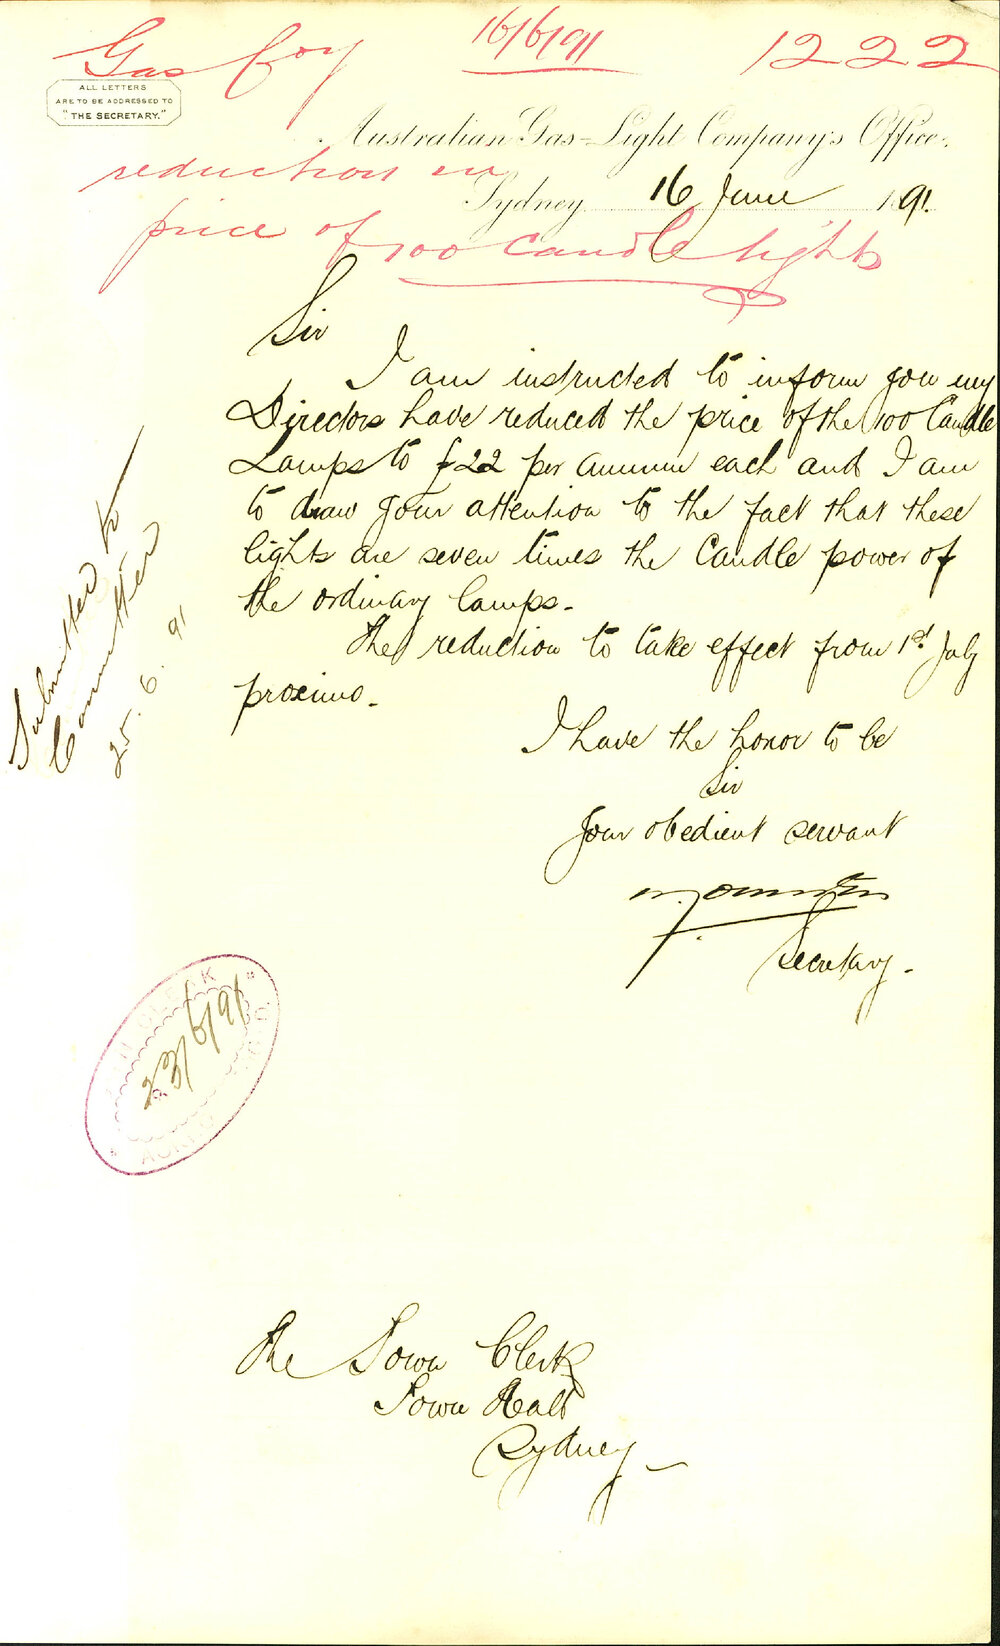 Gas Coy 16/6/91 1222
ALL LETTERS
ARE TO BE ADDRESSED TO
"THE SECRETARY."
Australian Gas-Light Company's Office,
reduction in
Sydney 16 June 1891.
price of 100 candle lights
Sir
I am instructed to inform you my
Directors have reduced the price of the 100 Candle
Lamps to £22 per annum each and I am
to draw your attention to the fact that these
lights are seven times the Candle power of
the ordinary lamps.
The reduction to take effect from 1st July
proximo.
I have the honor to be
Sir
Your obedient servant
Secretary.
Submitted to
Committee
25.6.91
CLERK
23/6/91
The Town Clerk
Town Hall
Sydney